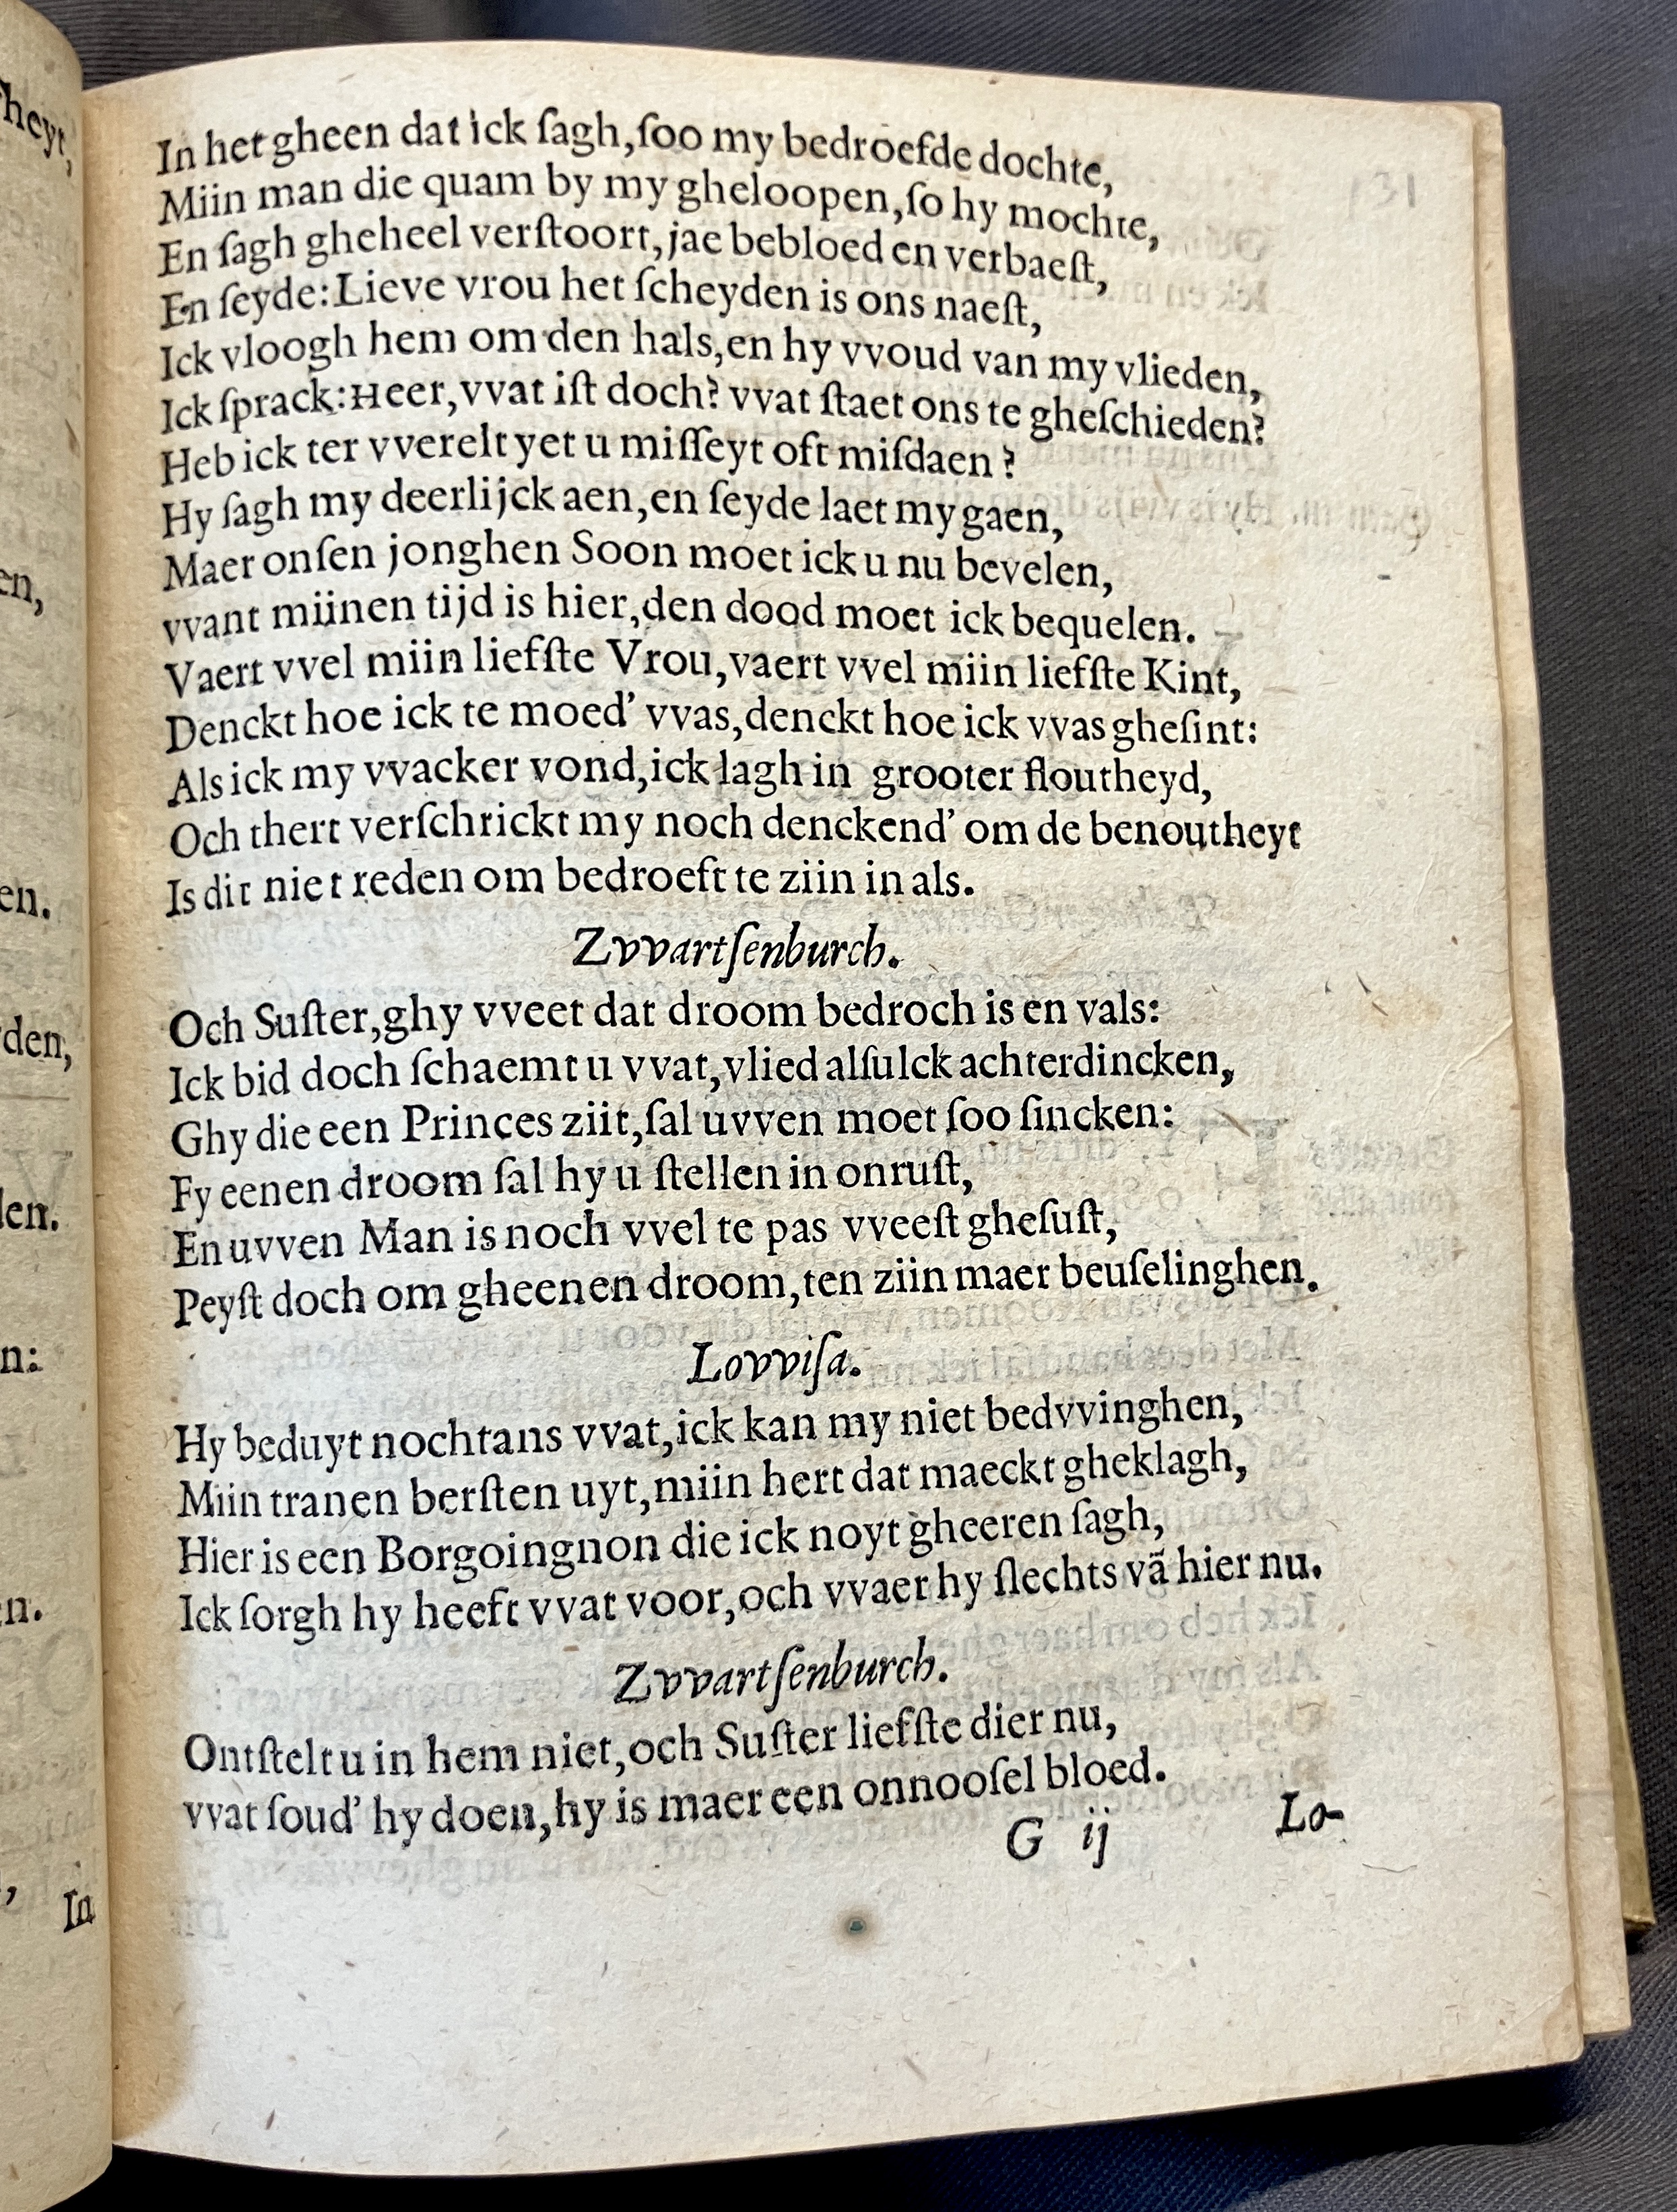 131
In het gheen dat ick ſagh,ſoo my bedroefde dochte,
Miin man die quam by my gheloopen,ſo hy mochte,
En ſagh gheheel verſtoort,jae bebloed en verbaeſt,
En ſeyde:Lieve vrou het ſcheyden is ons naeſt,
Ick vloogh hem om den hals,en hy vvoud van my vlieden,
Ick ſprack:Heer,vvat iſt doch? vvat ſtaet ons te gheſchieden?
Heb ick ter vverelt yet u miſſeyt oft miſdaen ?
Hy ſagh my deerlijck aen,en ſeyde laet my gaen,
Maer onſen jonghen Soon moet ick u nu bevelen,
vvant miinen tijd is hier,den dood moet ick bequelen.
Vaert vvel miin liefſte Vrou,vaert vvel miin liefſte Kint,
Denckt hoe ick te moed' vvas,denckt hoe ick vvas gheſint:
Als ick my vvacker vond,ick lagh in grooter floutheyd,
Och thert verſchrickt my noch denckend' om de benoutheyt
Is dit niet reden om bedroeft te ziin in als.
Zvvartſenburch.
Och Suſter,ghy vveet dat droom bedroch is en vals:
Ick bid doch ſchaemt u vvat,vlied alſulck achterdincken,
Ghy die een Princes ziit,ſal uvven moet ſoo ſincken:
Fy eenen droom ſal hy u ſtellen in onruſt,
En uvven Man is noch vvel te pas vveeſt gheſuſt,
Peyſt doch om gheenen droom,ten ziin maer beuſelinghen.
Lovviſa.
Hy beduyt nochtans vvat,ick kan my niet bedvvinghen,
Miin tranen berſten uyt,miin hert dat maeckt gheklagh,
Hier is een Borgoingnon die ick noyt gheeren ſagh,
Ick ſorgh hy heeft vvat voor,och vvaer hy ſlechts vã hier nu.
Zvvartſenburch.
Ontſtelt u in hem niet,och Suſter liefſte dier nu,
vvat ſoud' hy doen,hy is maer een onnooſel bloed.
G ij Lo-
In